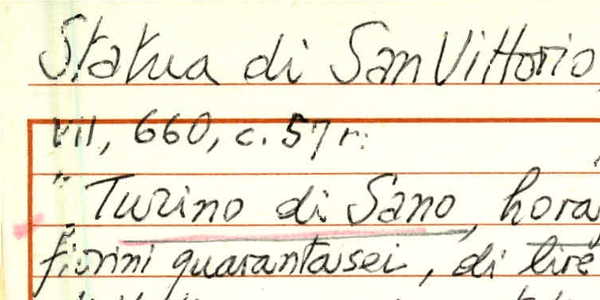 Statua di San Vittorio
VII, 660, c. 57 r.
"Turino di Sano, hora
fiorini quarantasei, di lire